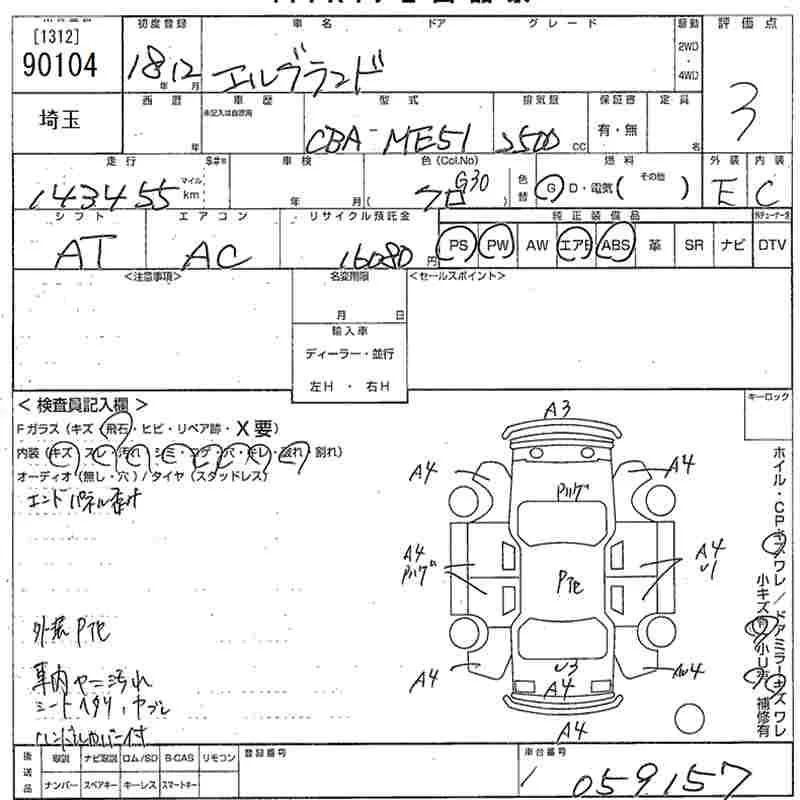 [1312]
90104
初度登録 車名 ドア グレード 駆動 評価点
18 年 12 月 エルグランド 2WD・4WD 3
埼玉
西暦 車歴 型式 排気量 保証書 定員
未記入は自家用
年 CBA-ME51 2500 CC 有・無 名
走行 $#* 車検 色(Col.No) 燃料 外装 内装
143455 マイル km 年 月 ( クロ G30 ) 色替 G D・電気( その他 ) E C
シフト エアコン リサイクル預託金 純正装備品
AT AC 16080 円 PS PW AW エアB ABS 革 SR ナビ DTV
<注意事項> 名変期限 <セールスポイント>
月 日
輸入車
ディーラー・並行
左H ・ 右H
<検査員記入欄> キーロック
Fガラス(キズ・飛石・ヒビ・リペア跡・X要)
内装(キズ・スレ・汚れ・シミ・コゲ・穴・キレ・破れ・割れ)
オーディオ(無し・穴)/タイヤ(スタッドレス)
エンドパネル歪み
外装 Pヤセ
車内ヤニ汚れ
シートヘタリ、ヤブレ
ハンドルカバー付
A3
A4
A4
Pハゲ
A4
Pハゲ
Pヤセ
A4
U1
A4
U3
A4
AW4
A4
ホイル・CPキズワレ/ドアミラーキズワレ
小キズ有 小U有 補修有
後送品 取説 ナビ取説 ロム/SD B-CAS リモコン 登録番号 車台番号
ナンバー スペアキー キーレス スマートキー 059157